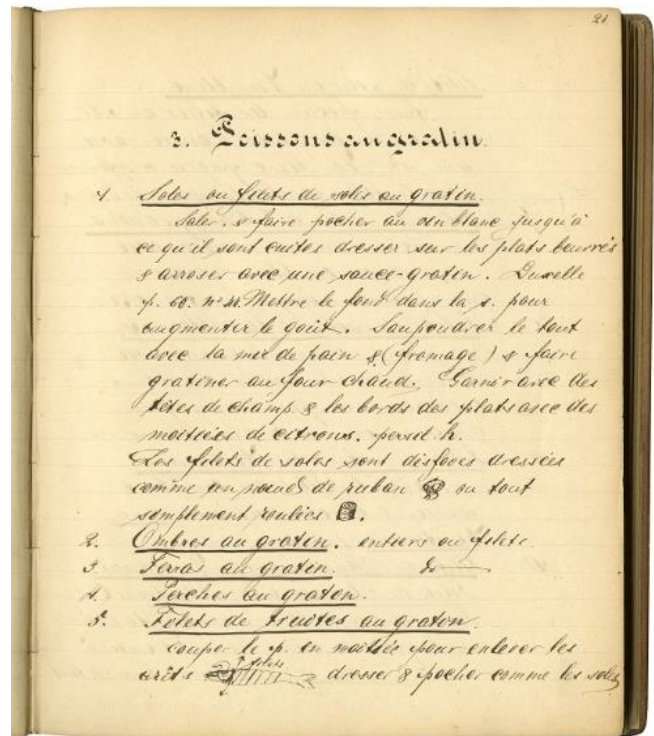 21
3. Poissons au gratin.
1. Soles ou filets de soles au gratin.
Saler. & faire pocher au vin blanc jusqu'à
ce qu'il sont cuites dresser sur les plats beurrés
& arroser avec une sauce-gratin. Duxelle
p. 60. n° 41. Mettre le fond dans la s. pour
augmenter le goût. Saupoudrer le tout
avec la mie de pain & (fromage) & faire
gratiner au four chaud. Garnir avec des
têtes de champ. & les bords des plats avec des
moitiées de citrons. persil h.
Les filets de soles sont dressées
comme un nœud de ruban ou tout
simplement roulées.
2. Ombres au gratin. entiers ou filets.
3 Ferras au gratin. do
4. Perches au graton.
5. Filets de truites au graton.
couper le p. en moitiée pour enlever les
filets
arêts dresser & pocher comme les soles